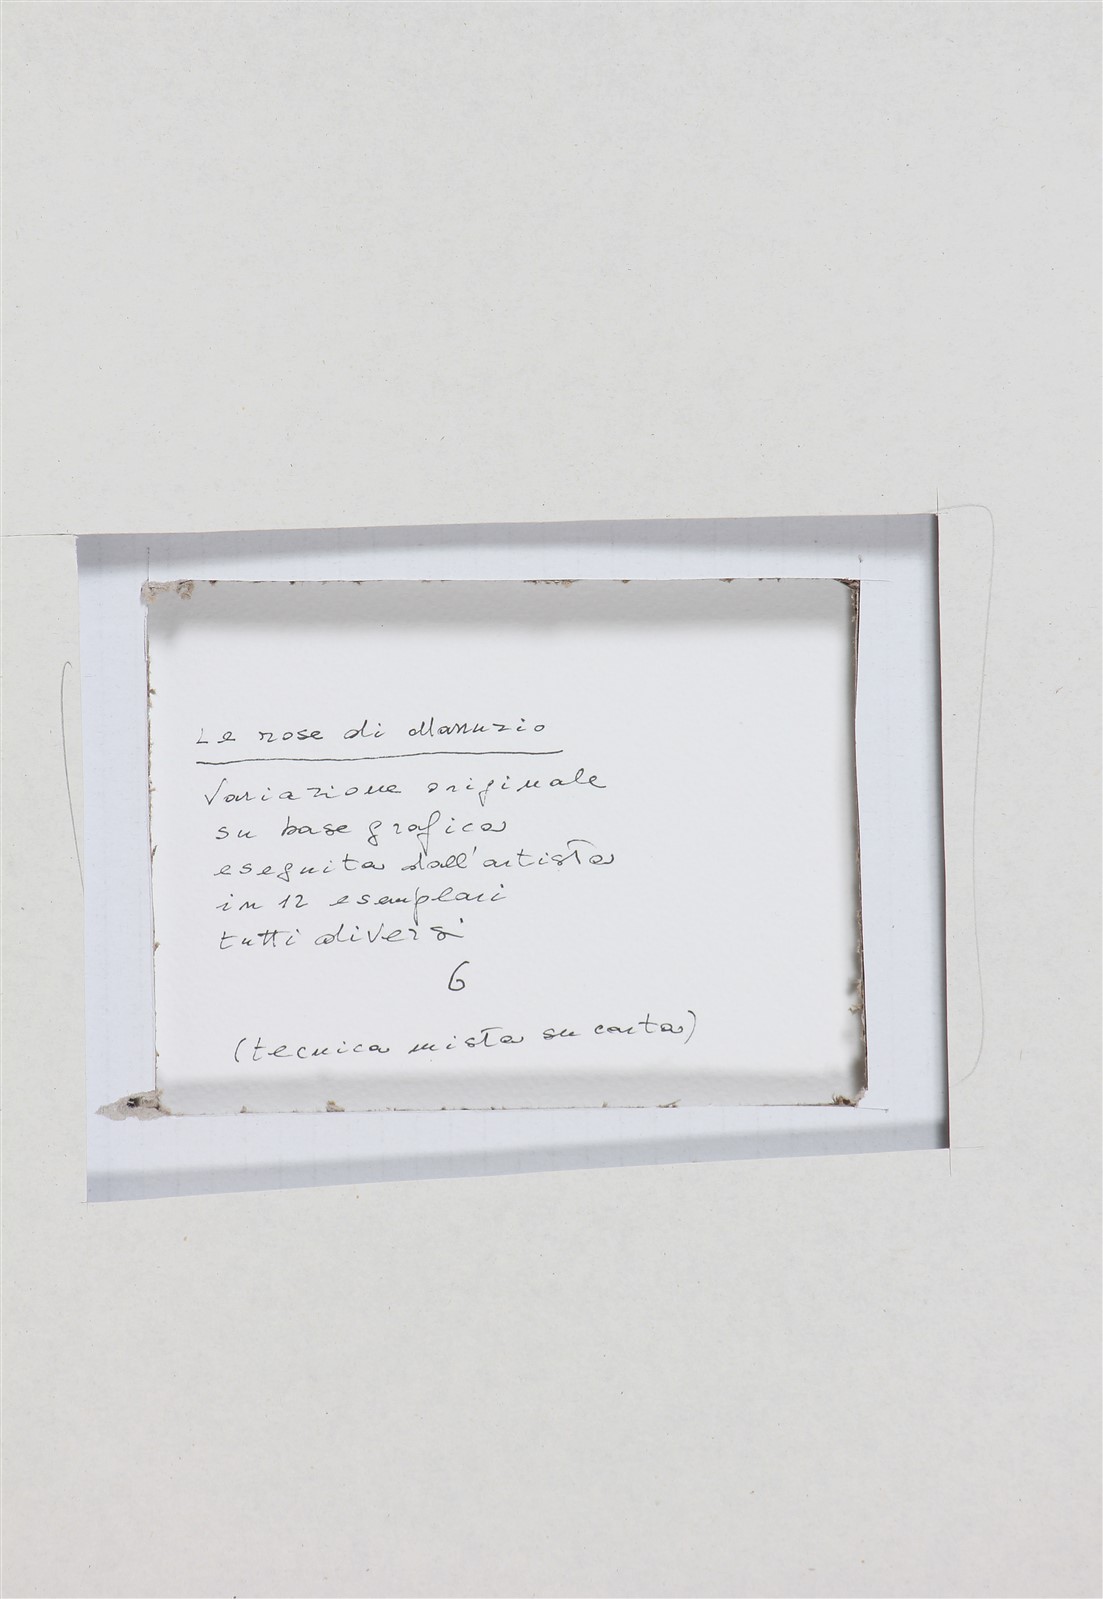 Le rose di Manuzio
Variazione originale
su base grafica
eseguita dall'artista
in 12 esemplari
tutti diversi
6
(tecnica mista su carta)